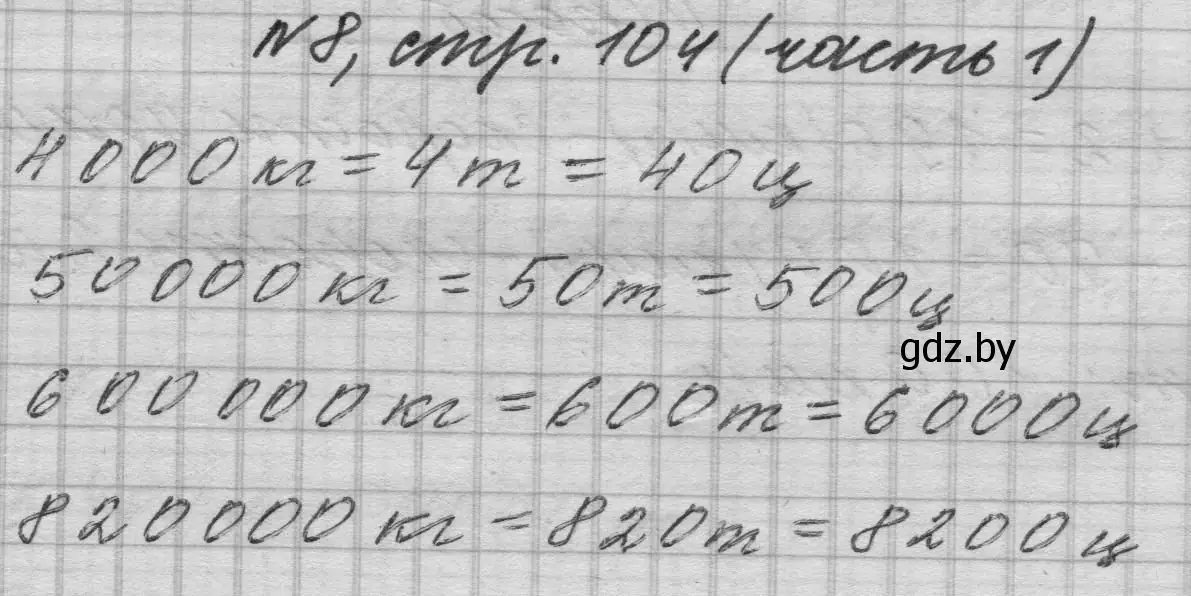 №8, стр. 104 (часть 1)
4000 кг = 4 т = 40 ц
50000 кг = 50 т = 500 ц
gdz.by
600 000 кг = 600 т = 6000 ц
820000 кг = 820 т = 8200 ц